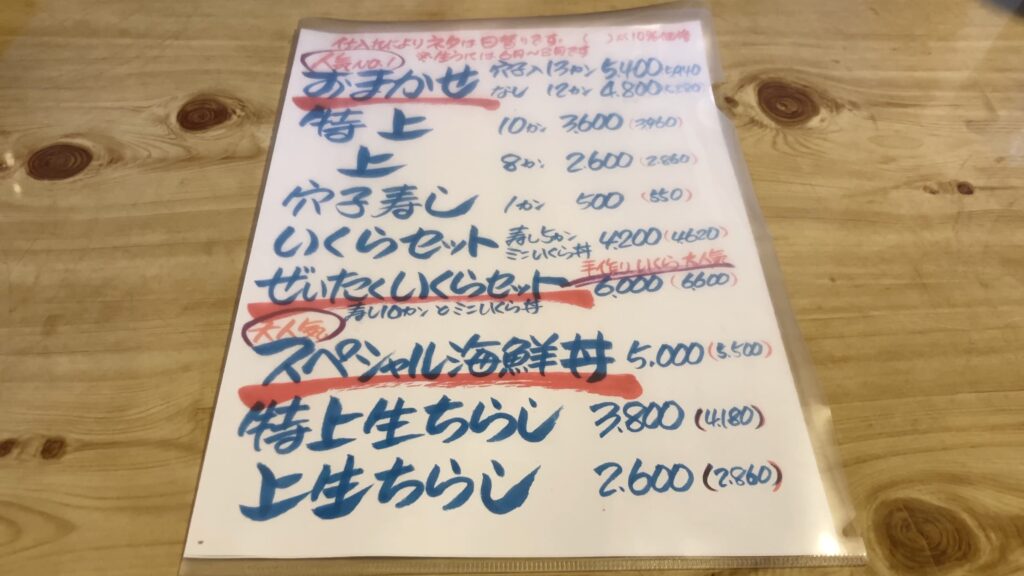 仕入れによりネタは日替りです。( )は10%価格
※生うには6月〜8月です
人気No.1
おまかせ 穴子入13カン 5,400 5,940
なし 12カン 4,800 5,280
特上 10カン 3,600 (3,960)
上 8カン 2,600 (2,860)
穴子寿し 1カン 500 (550)
いくらセット 寿し5カン ミニいくら丼 4,200 (4,620)
手作りいくら大人気
ぜいたくいくらセット 6,000 (6,600)
寿し10カンとミニいくら丼
大人気
スペシャル海鮮丼 5,000 (5,500)
特上生ちらし 3,800 (4,180)
上生ちらし 2,600 (2,860)